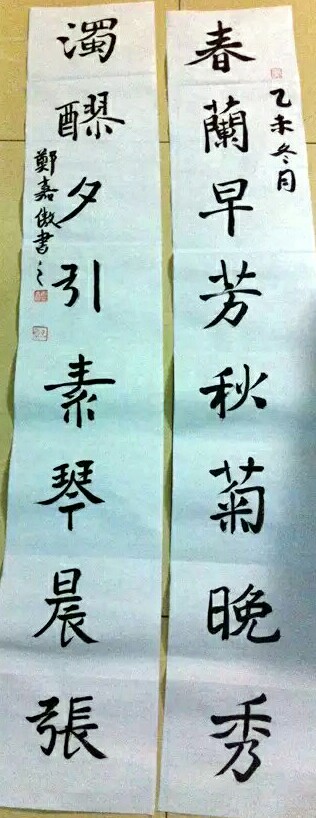 春蘭早芳秋菊晚秀
乙未冬月
濁醪夕引素琴晨張
鄭嘉傲書之